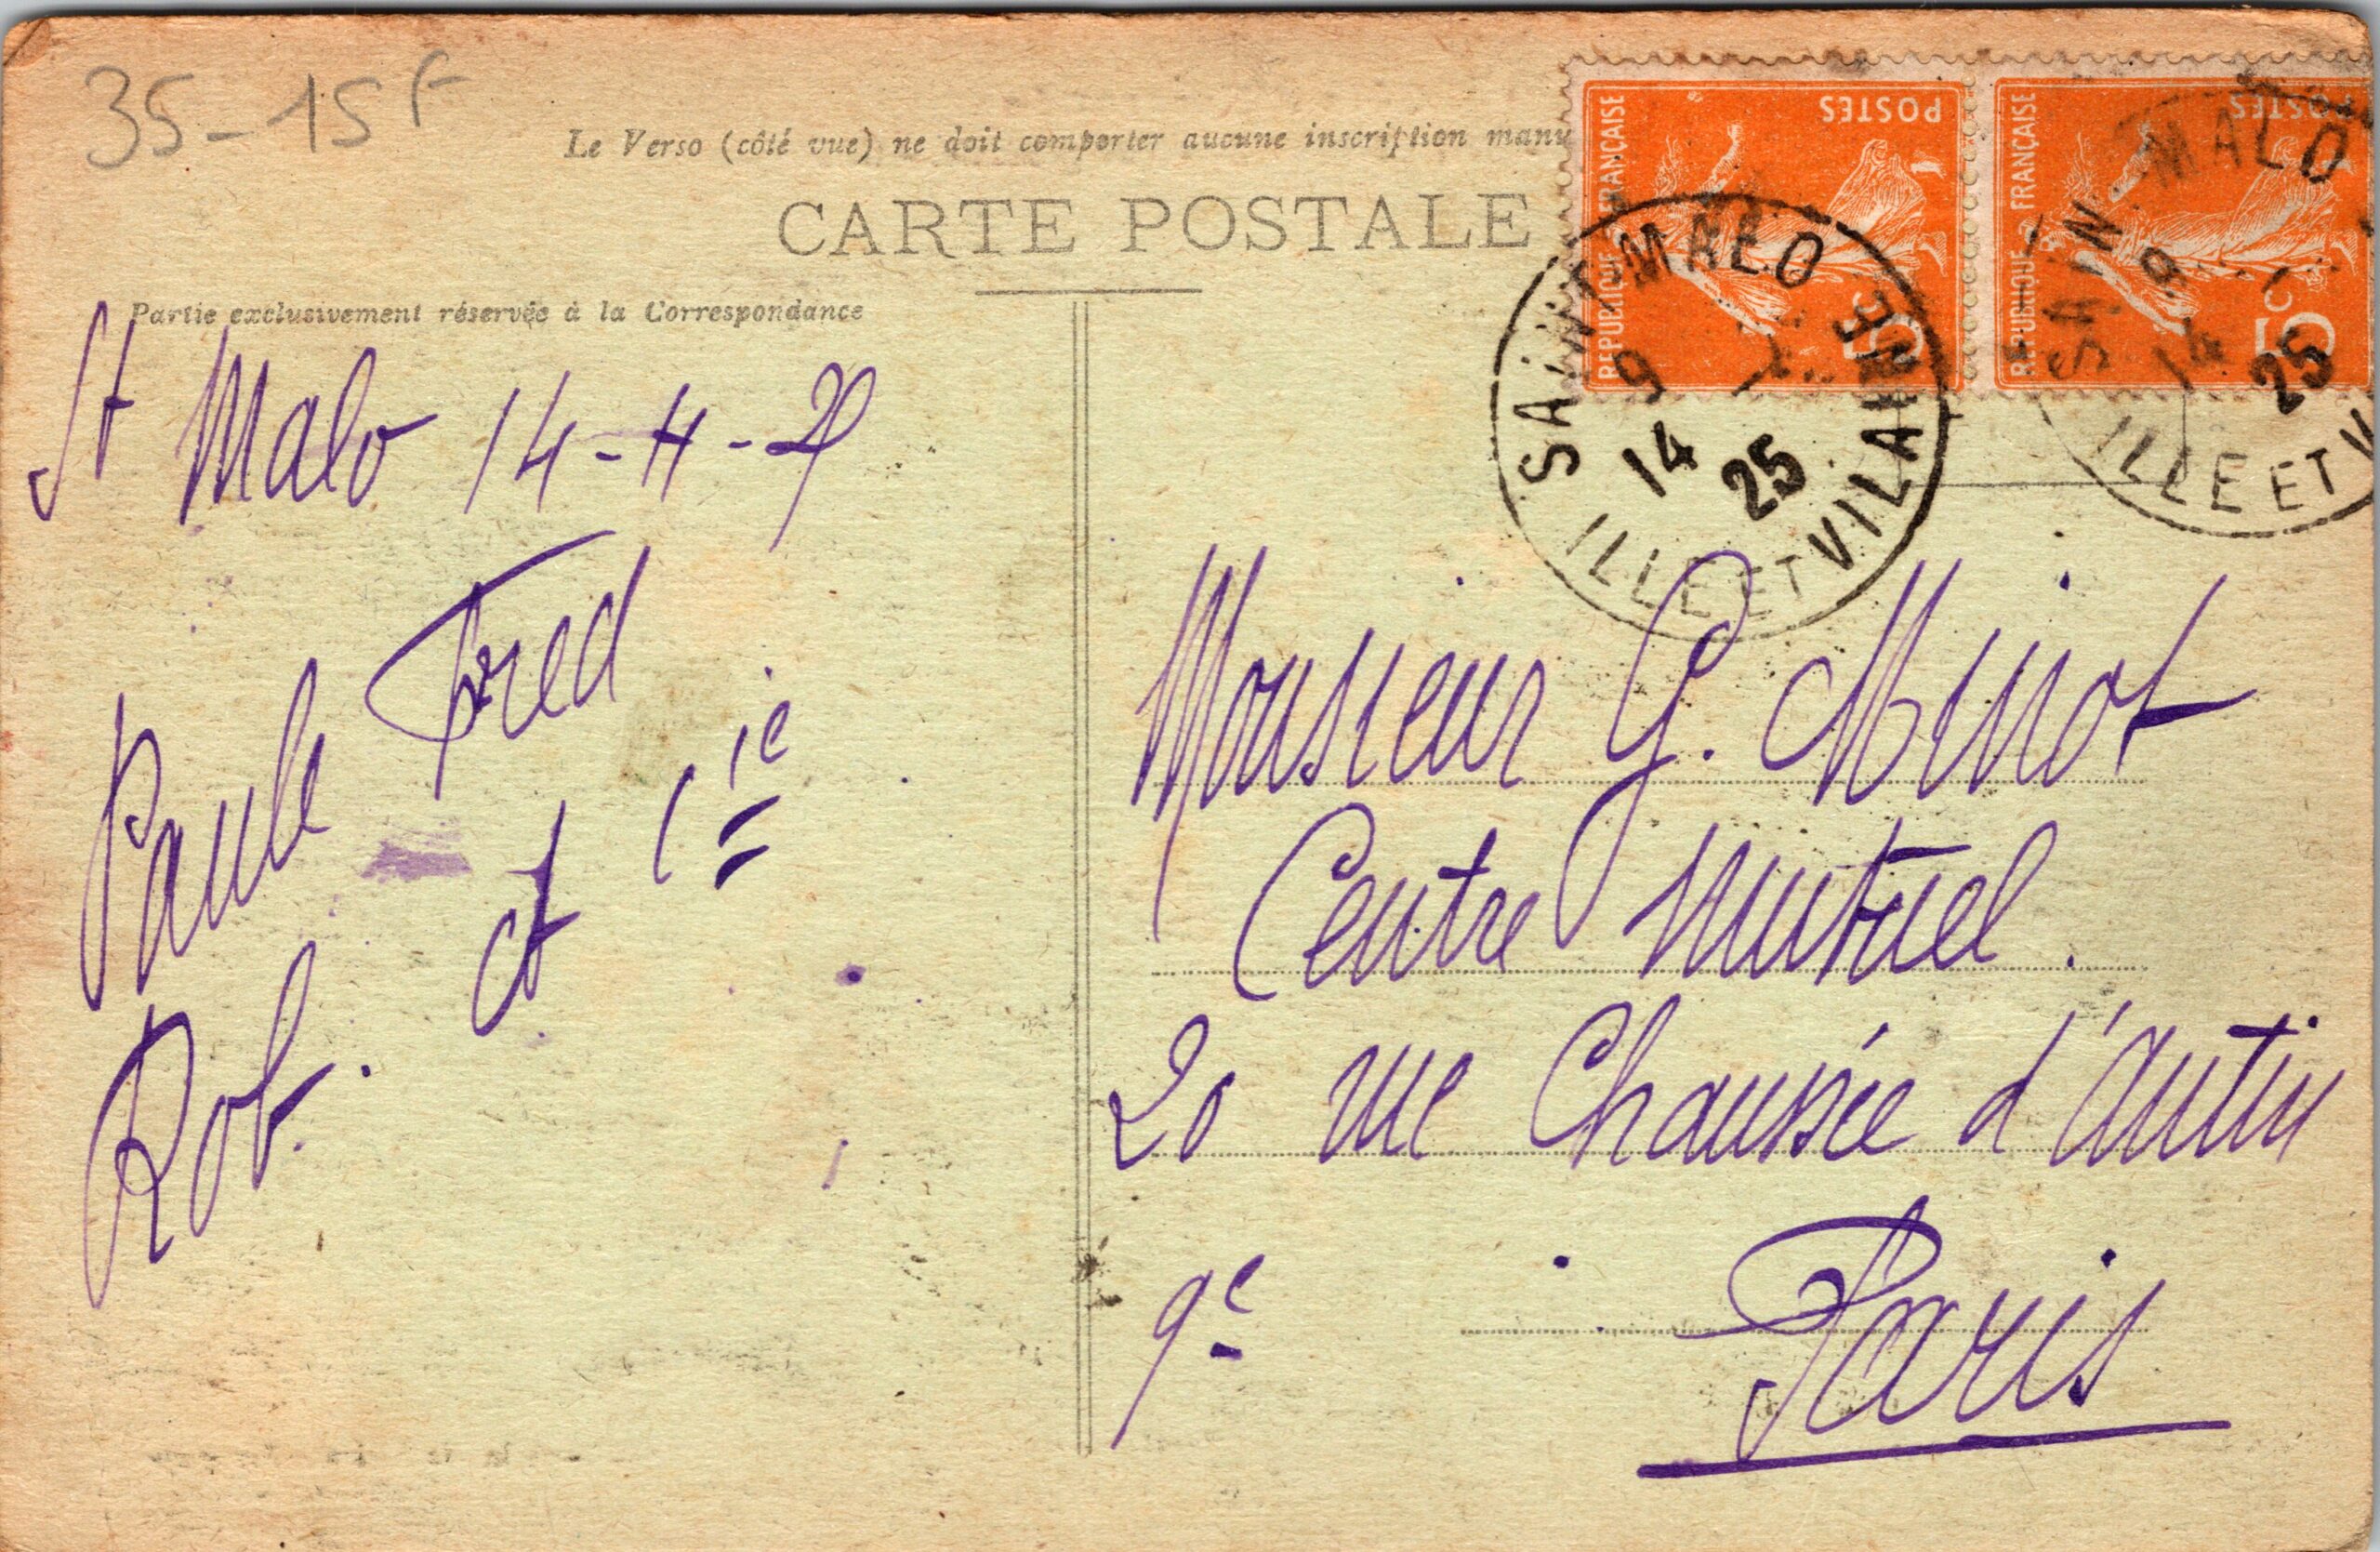 35-15F
Le Verso (côté vue) ne doit comporter aucune inscription manu
CARTE POSTALE
Partie exclusivement réservée à la Correspondance
St Malo 14-4-
Paule Fred
Rob. et Cie
REPUBLIQUE FRANÇAISE
POSTES
5c
REPUBLIQUE FRANÇAISE
POSTES
5c
SAINT-MALO
9
14
25
ILLE ET VILAINE
SAIN MALO
9
14
25
ILLE ET V
Monsieur G. Minot
Centre Mutuel.
20 rue Chaussée d'Antin
9e Paris